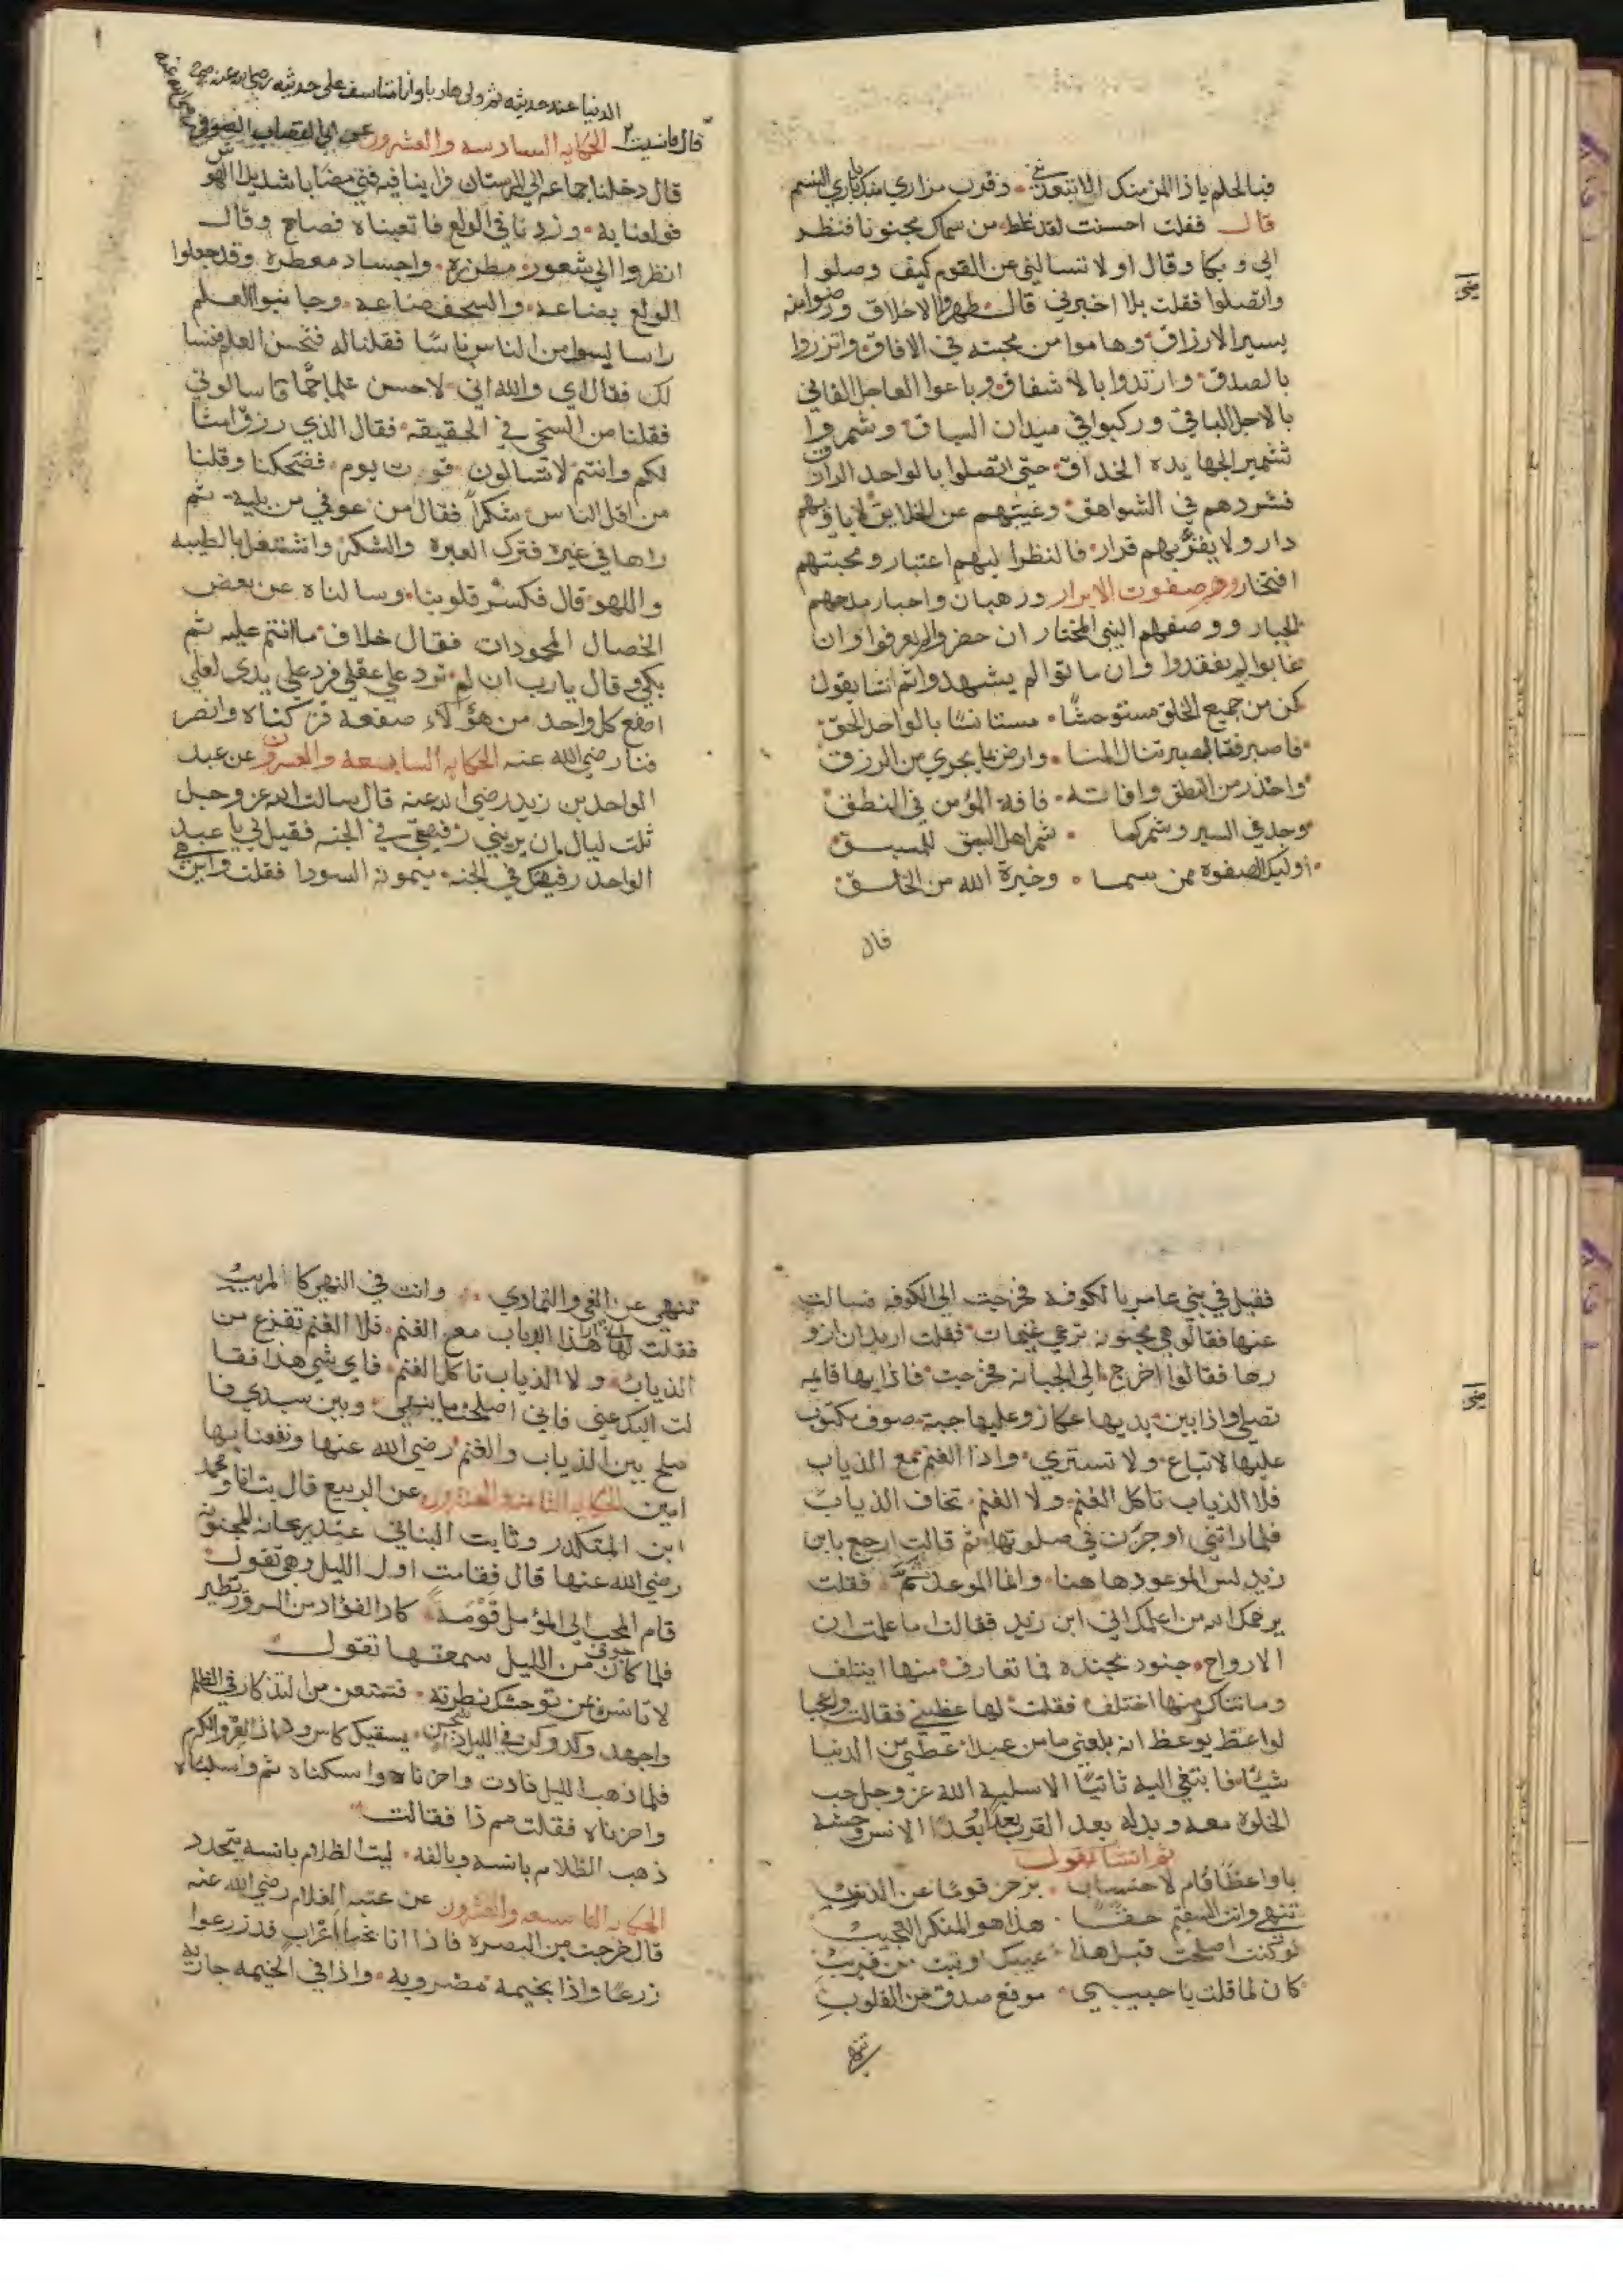 فبالحلم ياذا المن منك الاتبعدني • وقرب مزاري منك يا باري النسم
قال فقلت احسنت لقد غلط من سماك مجنونا فنظر
الي وبكا وقال او لا تسالني عن القوم كيف وصلوا
واتصلوا فقلت بلا اخبرني قال طهروا الاخلاق ورضوا منه
بيسير الارزاق وهاموا من محبته في الافاق واتزروا
بالصدق وارتدوا بالاشفاق وباعوا العاجل الفاني
بالاجل الباقي وركبوا في ميدان السباق وشمروا
تشمير الجهابده الحذاق حتي اتصلوا بالواحد الرزاق
فشردهم في الشواهق وغيبهم عن الخلايق لا ياويهم
دار ولا يقربهم قرار فالنظر اليهم اعتبار ومحبتهم
افتخار وهم صفوت الابرار ورهبان واحبار مدحهم
الجبار ووصفهم النبي المختار ان حضروا لم يعرفوا وان
غابوا لم يفقدوا وان ماتوا لم يشهدوا ثم انشا يقول
كن من جميع الخلق مستوحشا • مستانسا بالواحد الحق
فاصبر فبالصبر تنال المنا • وارض بما يجري من الرزق
واحذر من النطق وافاته • فافة المؤمن في النطق
وجد في السير وشمر كما • شمر اهل السبق للسبق
اوليك الصفوة ممن سما • وخيرة الله من الخلق
قال
الدنيا عند حديثه ثم ولي هاربا وانا متاسف علي حديثه رضي الله عنه
قال فانسيت الحكايه السادسه والعشرون عن ابي القصاب الصوفي
قال دخلنا جماعه الي المرستان فراينا فيه فتي مصابا شديد الهوس
فولعنا به • وزدنا في الولع فاتعبناه فصاح وقال
انظروا الي شعور مطرزه • واجساد معطره وقد جعلوا
الولع بضاعه • والسخف صناعه • وجانبوا العلم
راسا ليسوا من الناس ناسا فقلنا له فتحسن العلم فنسا
لك فقال اي والله اني لاحسن علما جما فاسالوني
فقلنا من السخي في الحقيقه فقال الذي رزق امثا
لكم وانتم لا تساوون قوت يوم • فضحكنا وقلنا
من اقل الناس شكرا فقال من عوفي من بليه ثم
راها في غيره فترك العبرة والشكر واشتغل بالطيبه
واللهو قال فكسر قلوبنا • وسالناه عن بعض
الخصال المحمودات فقال خلاف ما انتم عليه ثم
بكي وقال يارب ان لم ترد علي عقلي فرد علي يدي لعلي
اصفع كل واحد من هؤلاء صفعة فتركناه وانصر
فنا رضي الله عنه الحكايه السابعه والعشرون عن عبد
الواحد بن زيد رضي الله عنه قال سالت الله عز وجل
ثلث ليال ان يريني رفيقي في الجنه فقيل لي يا عبد
الواحد رفيقك في الجنه ميمونه السودا فقلت واين هي
فقيل في بني عامر بالكوفه فخرجت الي الكوفه فسالت
عنها فقالوا هي مجنونه ترعي غنيمات فقلت اريد ان ازو
رها فقالوا اخرج الي الجبانه فخرجت فاذا بها قايمه
تصلي واذا بين يديها عكاز وعليها جبة صوف مكتوب
عليها لا تباع ولا تستري • واذا الغنم مع الذياب
فلا الذياب تاكل الغنم ولا الغنم تخاف الذياب
فلما راتني اوجزت في صلوتها ثم قالت ارجع يا ابن
زيد ليس الموعود هاهنا • وانما الموعد ثم فقلت
يرحمك الله من اعلمك اني ابن زيد فقالت اما علمت ان
الارواح جنود مجنده فما تعارف منها ايتلف
وما تناكر منها اختلف فقلت لها عظيني فقالت واعجبا
لواعظ يوعظ انه بلغني ما من عبد اعطي من الدنيا
شيئا فابتغي اليه ثانيا الا سلبه الله عز وجل حب
الخلوة معه وبدله بعد القرب بعدا وبعد الانس وحشة
ثم انشا تقول
يا واعظا قام لاحتساب • يزجر قوما عن الذنوب
تنهي وانت السقيم حقا • هذا هو المنكر العجيب
لو كنت اصلحت قبل هذا • عيبك او تبت من قريب
كان لما قلت يا حبيبي • موقع صدق من القلوب
تنهي
تنهي عن الغي والتمادي • وانت في النهي كالمريب
فقلت لها هذا الذياب مع الغنم • فلا الغنم تفزع من
الذياب • ولا الذياب تاكل الغنم • فاي شي هذا فقا
لت اليك عني فاني اصلحت ما بيني • وبين سيدي فا
صلح بين الذياب والغنم رضي الله عنها ونفعنا بها
امين الحكايه الثامنه والعشرون عن الربيع قال بت انا ومحمد
ابن المنكدر وثابت البناني عند ريحانه المجنونه
رضي الله عنها قال فقامت اول الليل وهي تقول
قام المحب الي المؤمل قومة • كاد الفؤاد من السرور يطير
فلما كان جوف من الليل سمعتها تقول
لا تانسن بمن توحشك نظرته • فتمنعن من التذكار في الظلم
واجهد وكد وكن في الليل ذا شجن • يسقيك كاس وداد العز والكرم
فلما ذهب الليل نادت واحزناه واسكناه ثم واسلباه
واحزناه فقلت مم ذا فقالت
ذهب الظلام بانسه وبالفه • ليت الظلام بانسه يتجدد
الحكايه التاسعه والعشرون عن عتبه الغلام رضي الله عنه
قال خرجت من البصره فاذا انا بخبا اعراب قد زرعوا
زرعا واذا بخيمه مضروبه • واذا في الخيمه جاريه